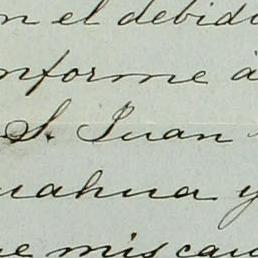 n el debido
nforme á
S. Juan
uahua y
ue mis cau